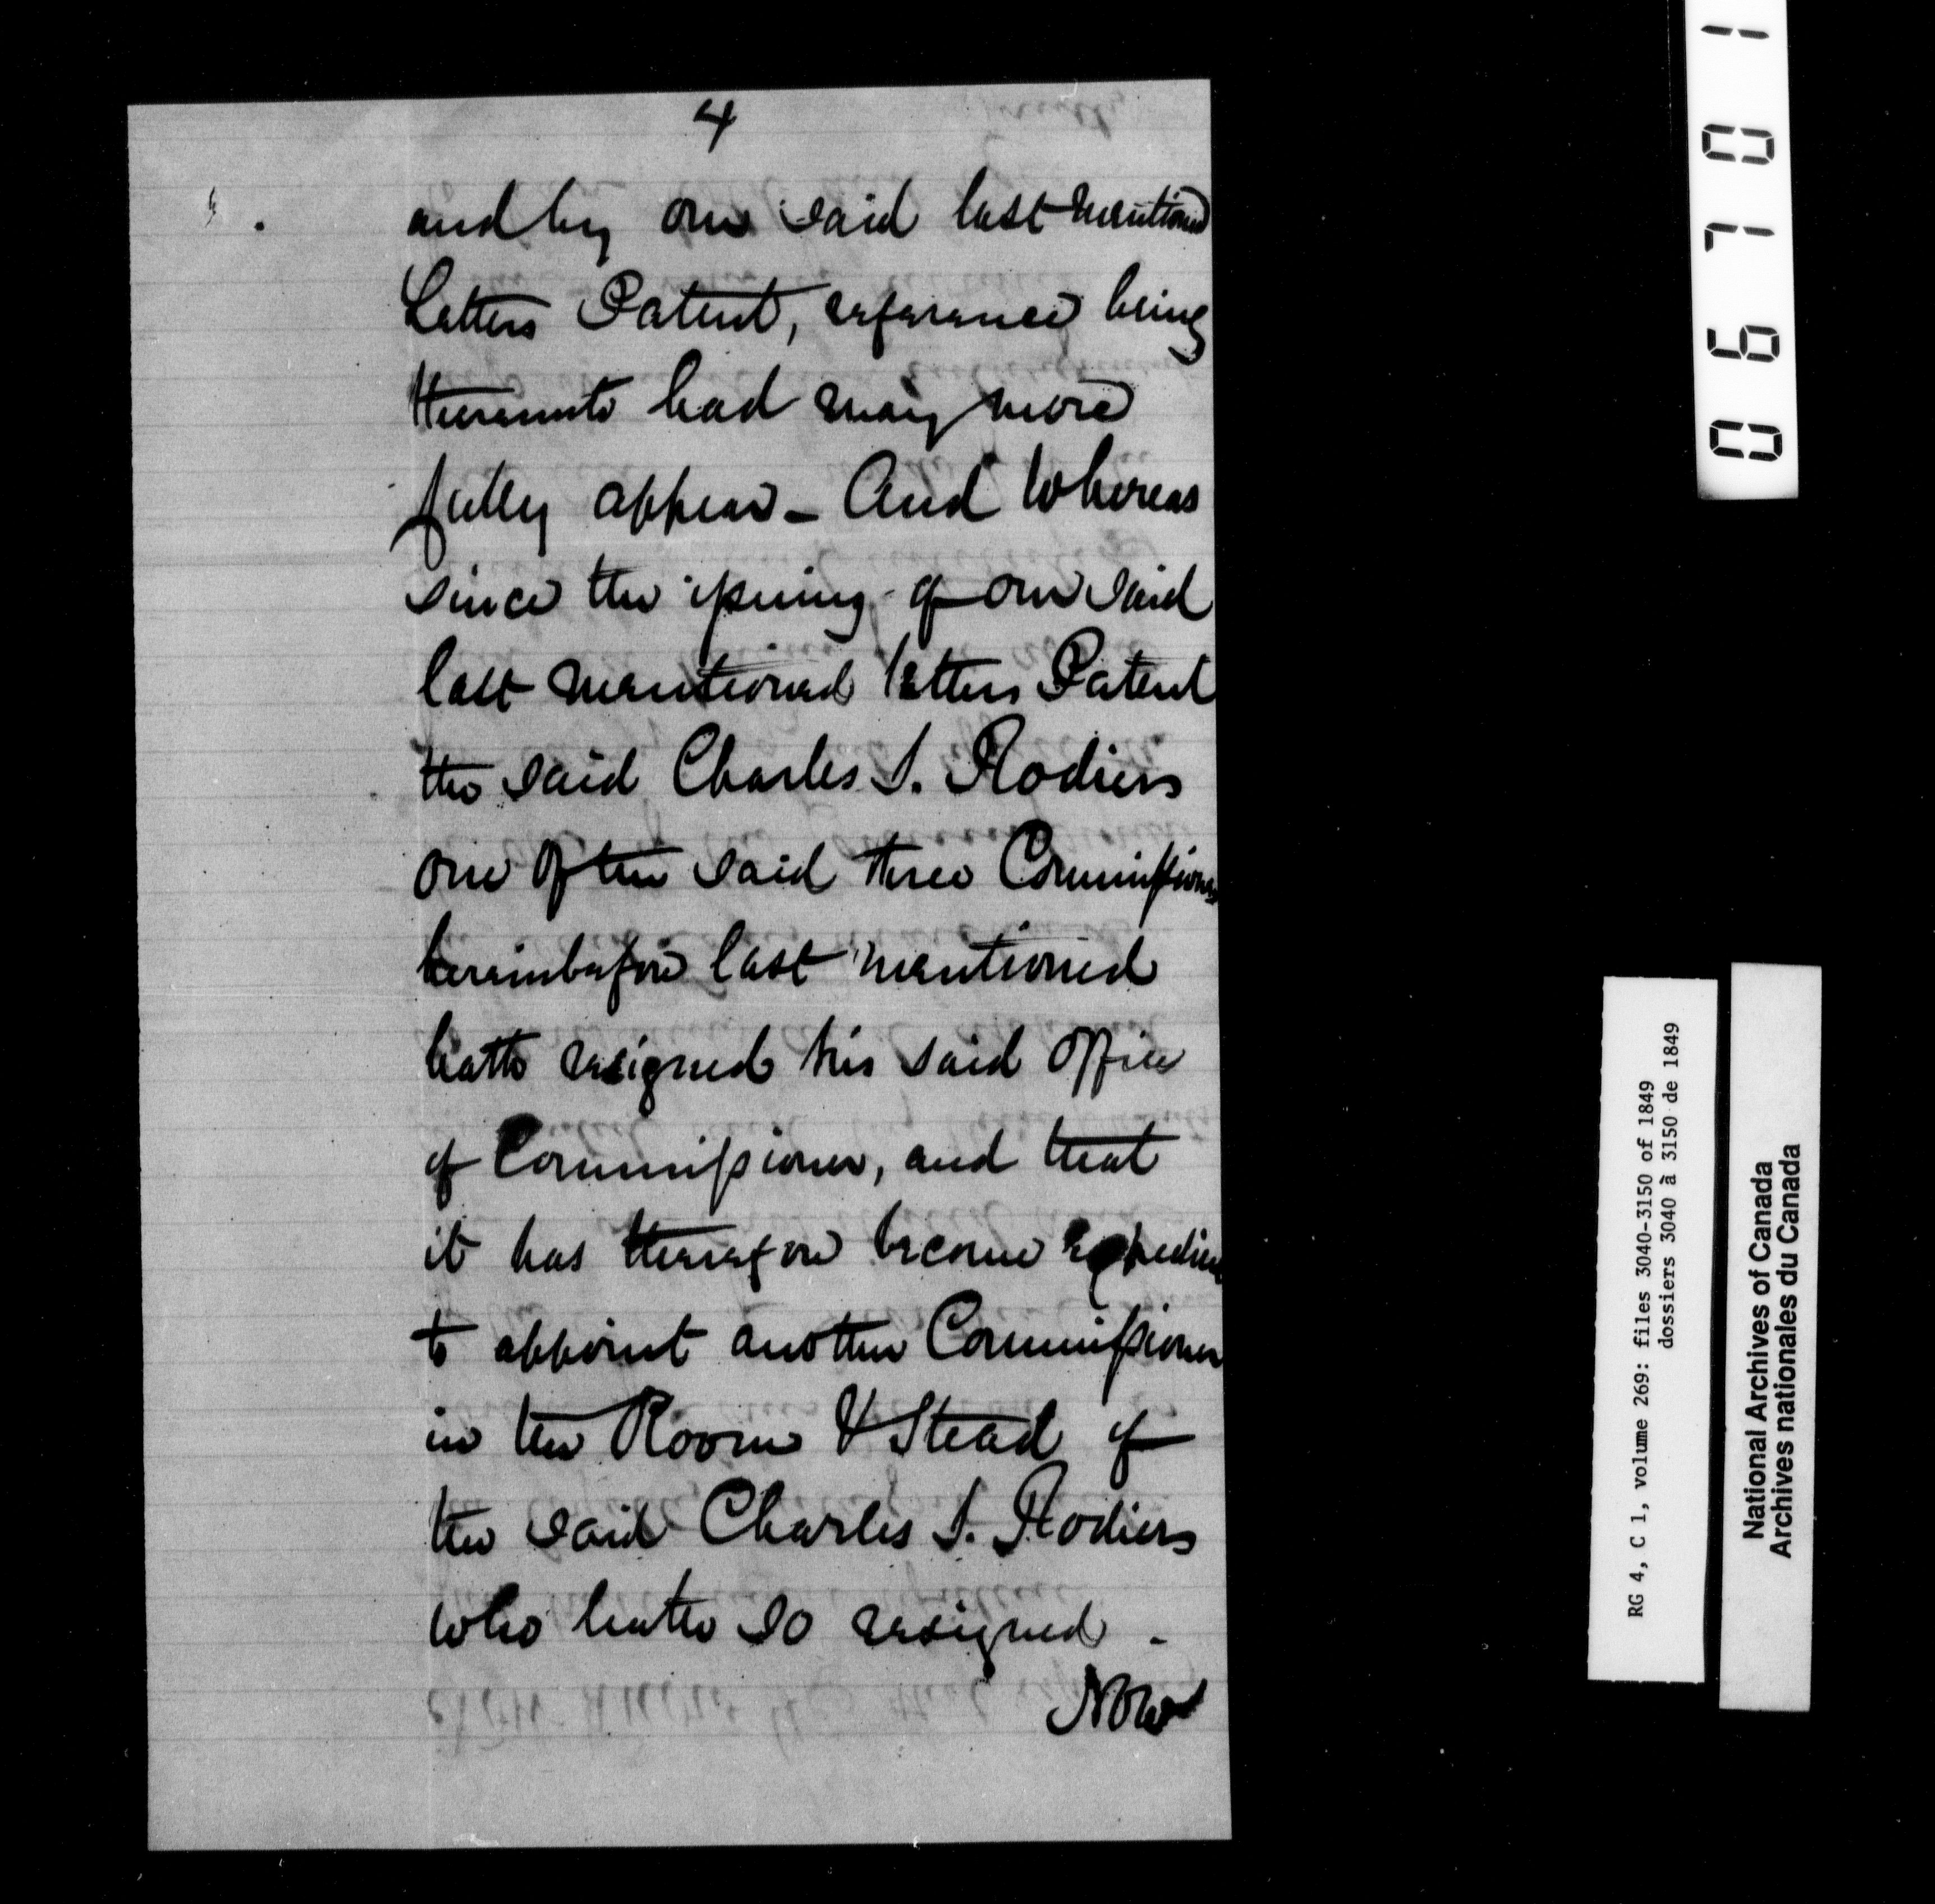 4
and by our said last mentioned
Letters Patent, reference being
thereunto had may more
fully appear - And Whereas
since the issuing of our said
last mentioned letters Patent
the said Charles S. Rodiers
one of the said three Commissioners
hereinbefore last mentioned
hath resigned his said office
of Commissioner, and that
it has therefore become Expedient
to appoint another Commissioner
in the Room & Stead of
the said Charles S. Rodiers
who hath so resigned -
Now
06701
RG 4, C 1, volume 269: files 3040-3150 of 1849
dossiers 3040 à 3150 de 1849
National Archives of Canada
Archives nationales du Canada